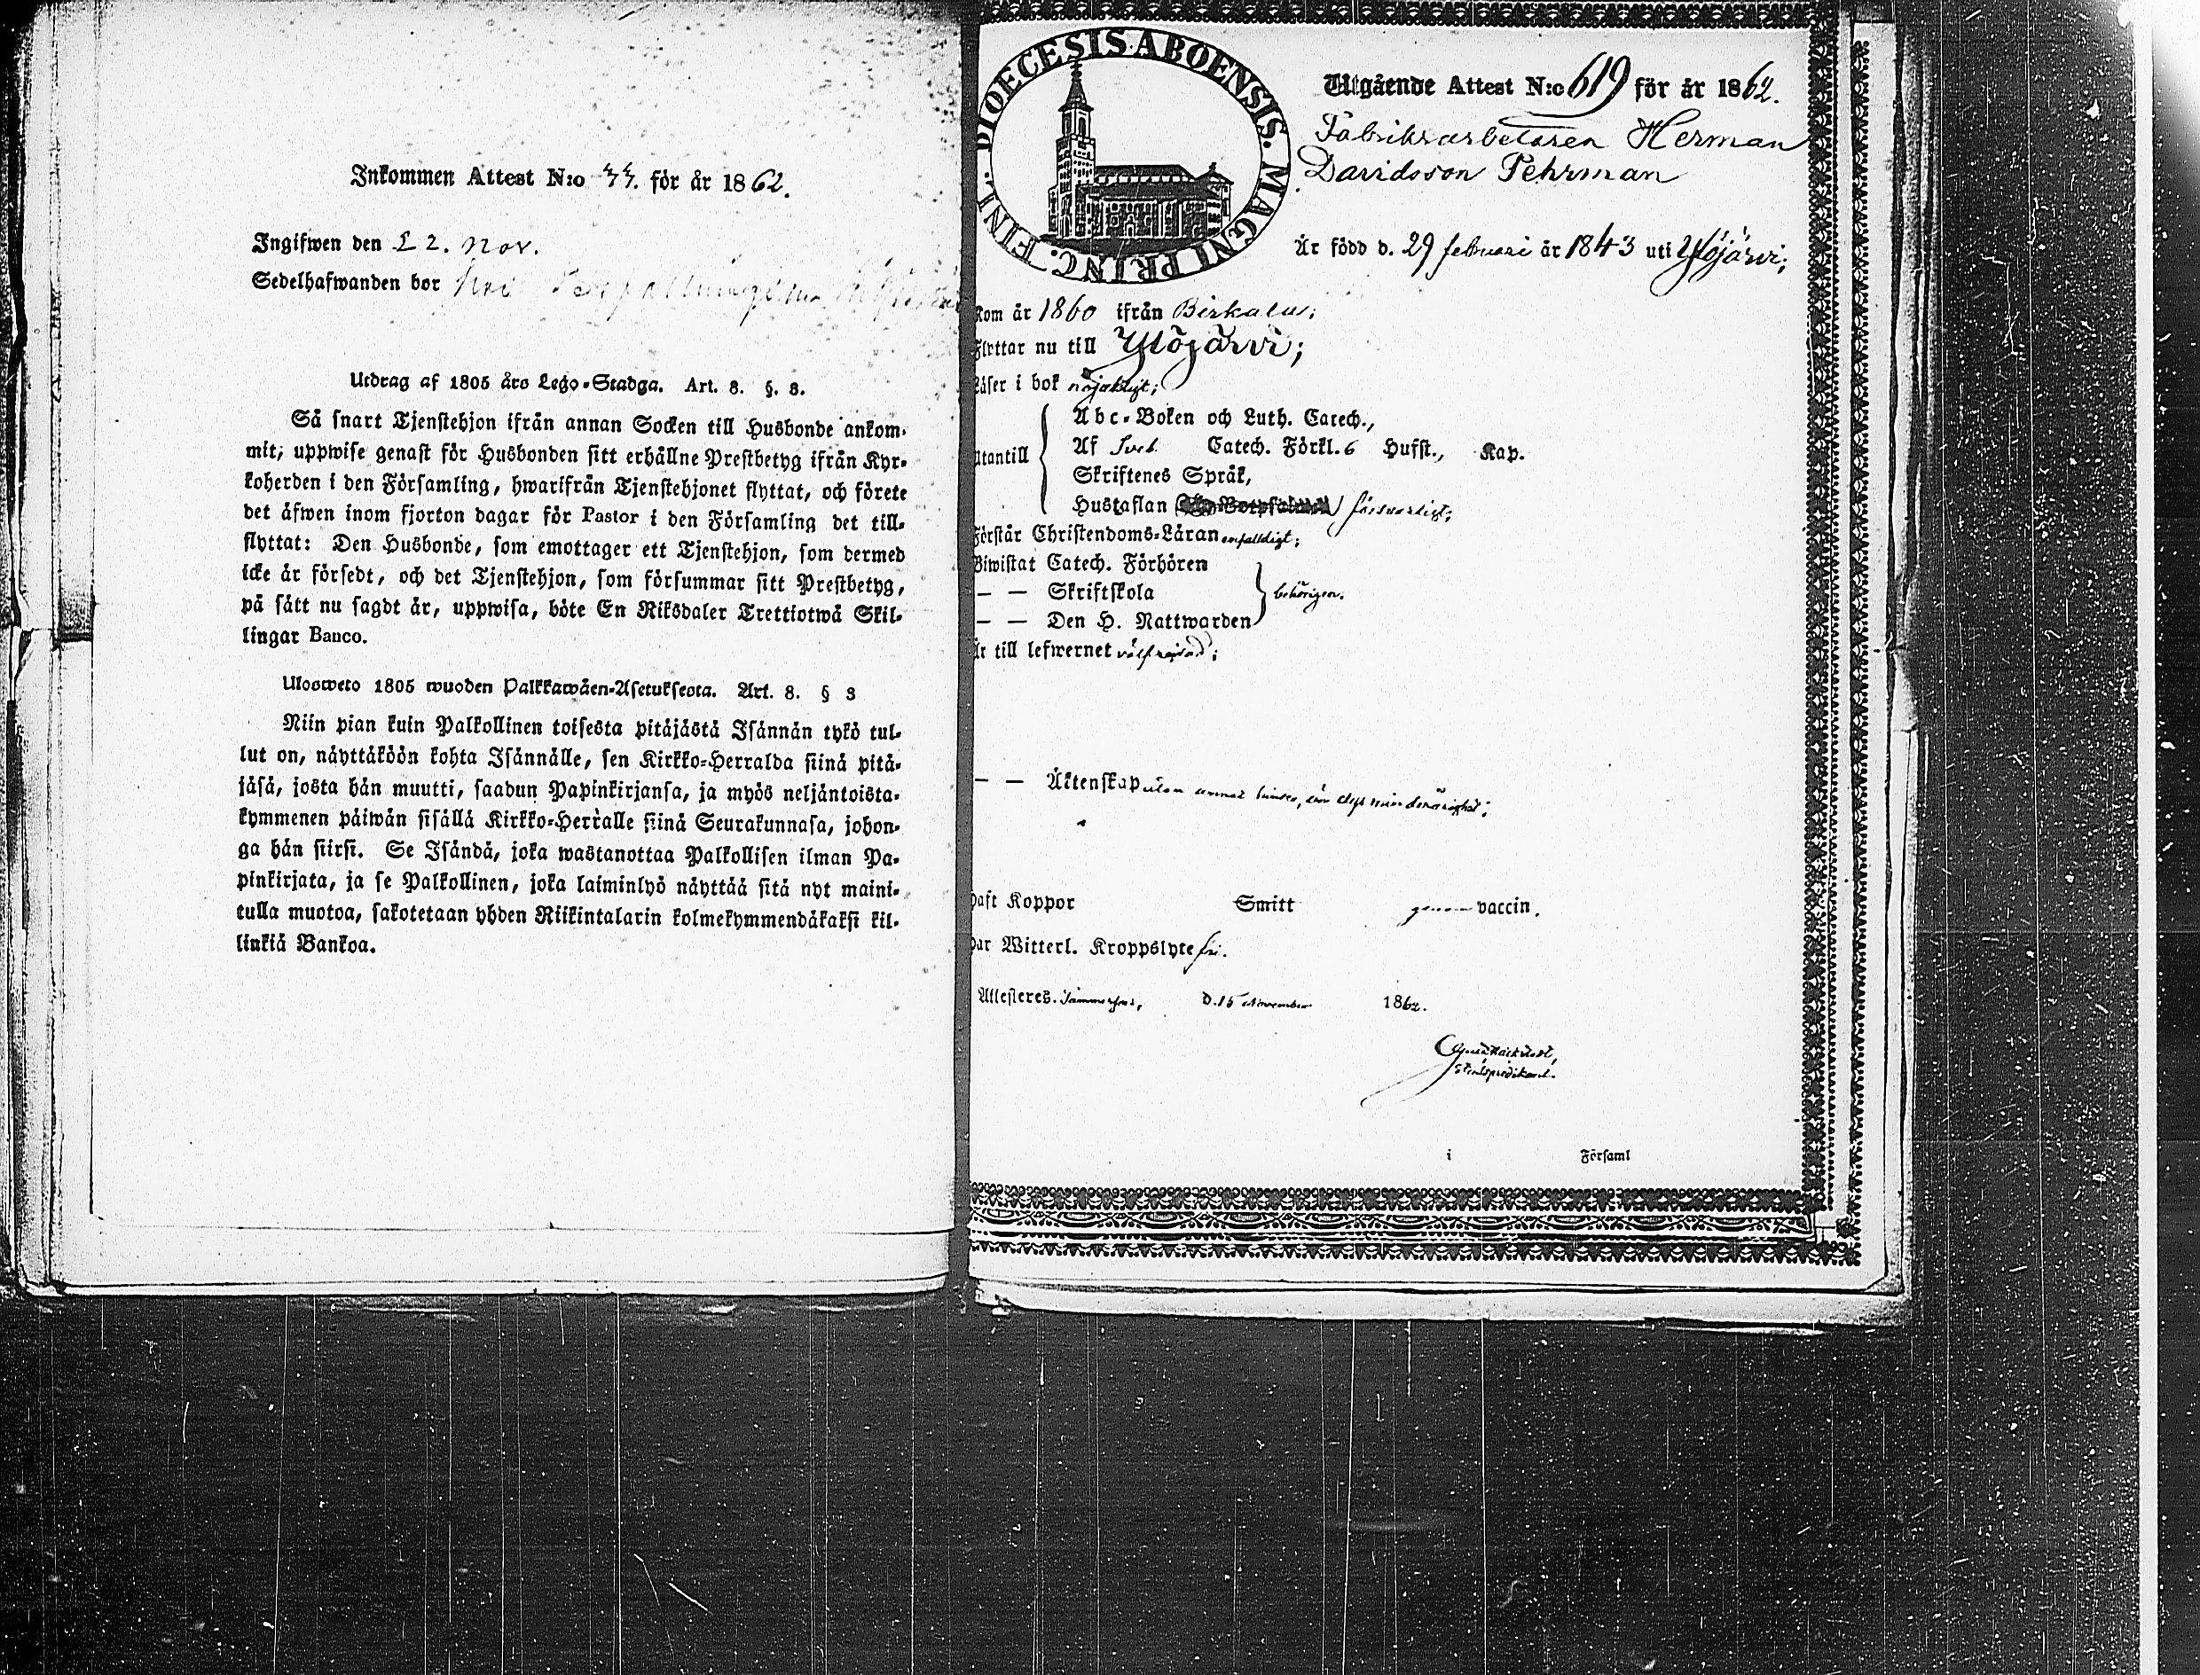 Inkommen Attest N:o 44. för år 1862.
Ingifwen den 22. Nov.
Sedelhafwanden bor hos
Utdrag af 1805 års Lego-Stadga. Art. 8. §. 8.
Så snart Tjenstehjon ifrån annan Socken till Husbonde ankom-
mit, uppwise genast för Husbonden sitt erhållne Prestbetyg ifrån Kyr-
koherden i den Församling, hwarifrån Tjenstehjonet flyttat, och förete
det äfwen inom fjorton dagar för Pastor i den Församling det till-
flyttat: Den Husbonde, som emottager ett Tjenstehjon, som dermed
icke är försedt, och det Tjenstehjon, som försummar sitt Prestbetyg,
på sätt nu sagdt är, uppwisa, böte En Riksdaler Trettiotwå Skil-
lingar Banco.
Ulosweto 1805 wuoden Palkkawäen-Asetuksesta. Art. 8. § 3
Niin pian kuin Palkollinen toisesta pitäjästä Isännän tykö tul-
lut on, näyttäköön kohta Isännälle, sen Kirkko-Herralda siinä pitä-
jäsä, josta hän muutti, saadun Papinkirjansa, ja myös neljäntoista-
kymmenen päiwän sisällä Kirkko-Herralle siinä Seurakunnasa, johon-
ga hän siirsi. Se Isändä, joka wastanottaa Palkollisen ilman Pa-
pinkirjata, ja se Palkollinen, joka laiminlyö näyttää sitä nyt maini-
tulla muotoa, sakotetaan yhden Riikintalarin kolmekymmendäkaksi kil-
linkiä Bankoa.
DIOECESIS ABOENSIS. MAGNI PRINC. FINL.
Utgående Attest N:o 619 för år 1862.
Fabriksarbetaren Herman
Davidsson Fehrman
Är född d. 29 februari år 1843 uti Ylöjärvi;
Kom år 1860 ifrån Birkala;
Flyttar nu till Ylöjärvi;
Läser i bok nöjaktigt;
Utantill
Abc-Boken och Luth. Catech.,
Af Sveb. Catech. Förkl. 6 Hufst., Kap.
Skriftenes Språk,
Hustaflan försvarligt;
Förstår Christendoms-Läran enfaldigt;
Biwistat Catech. Förhören
— — Skriftskola
— — Den H. Nattwarden
behörigen.
Är till lefwernet välfrejdad;
— — Äktenskap utan annat hinder, än dess minderårighet;
Haft Koppor Smitt genom vaccin.
Har Witterl. Kroppslyte fri.
Attesteres. Tammerfors, d. 15 November 1862.
i Församl